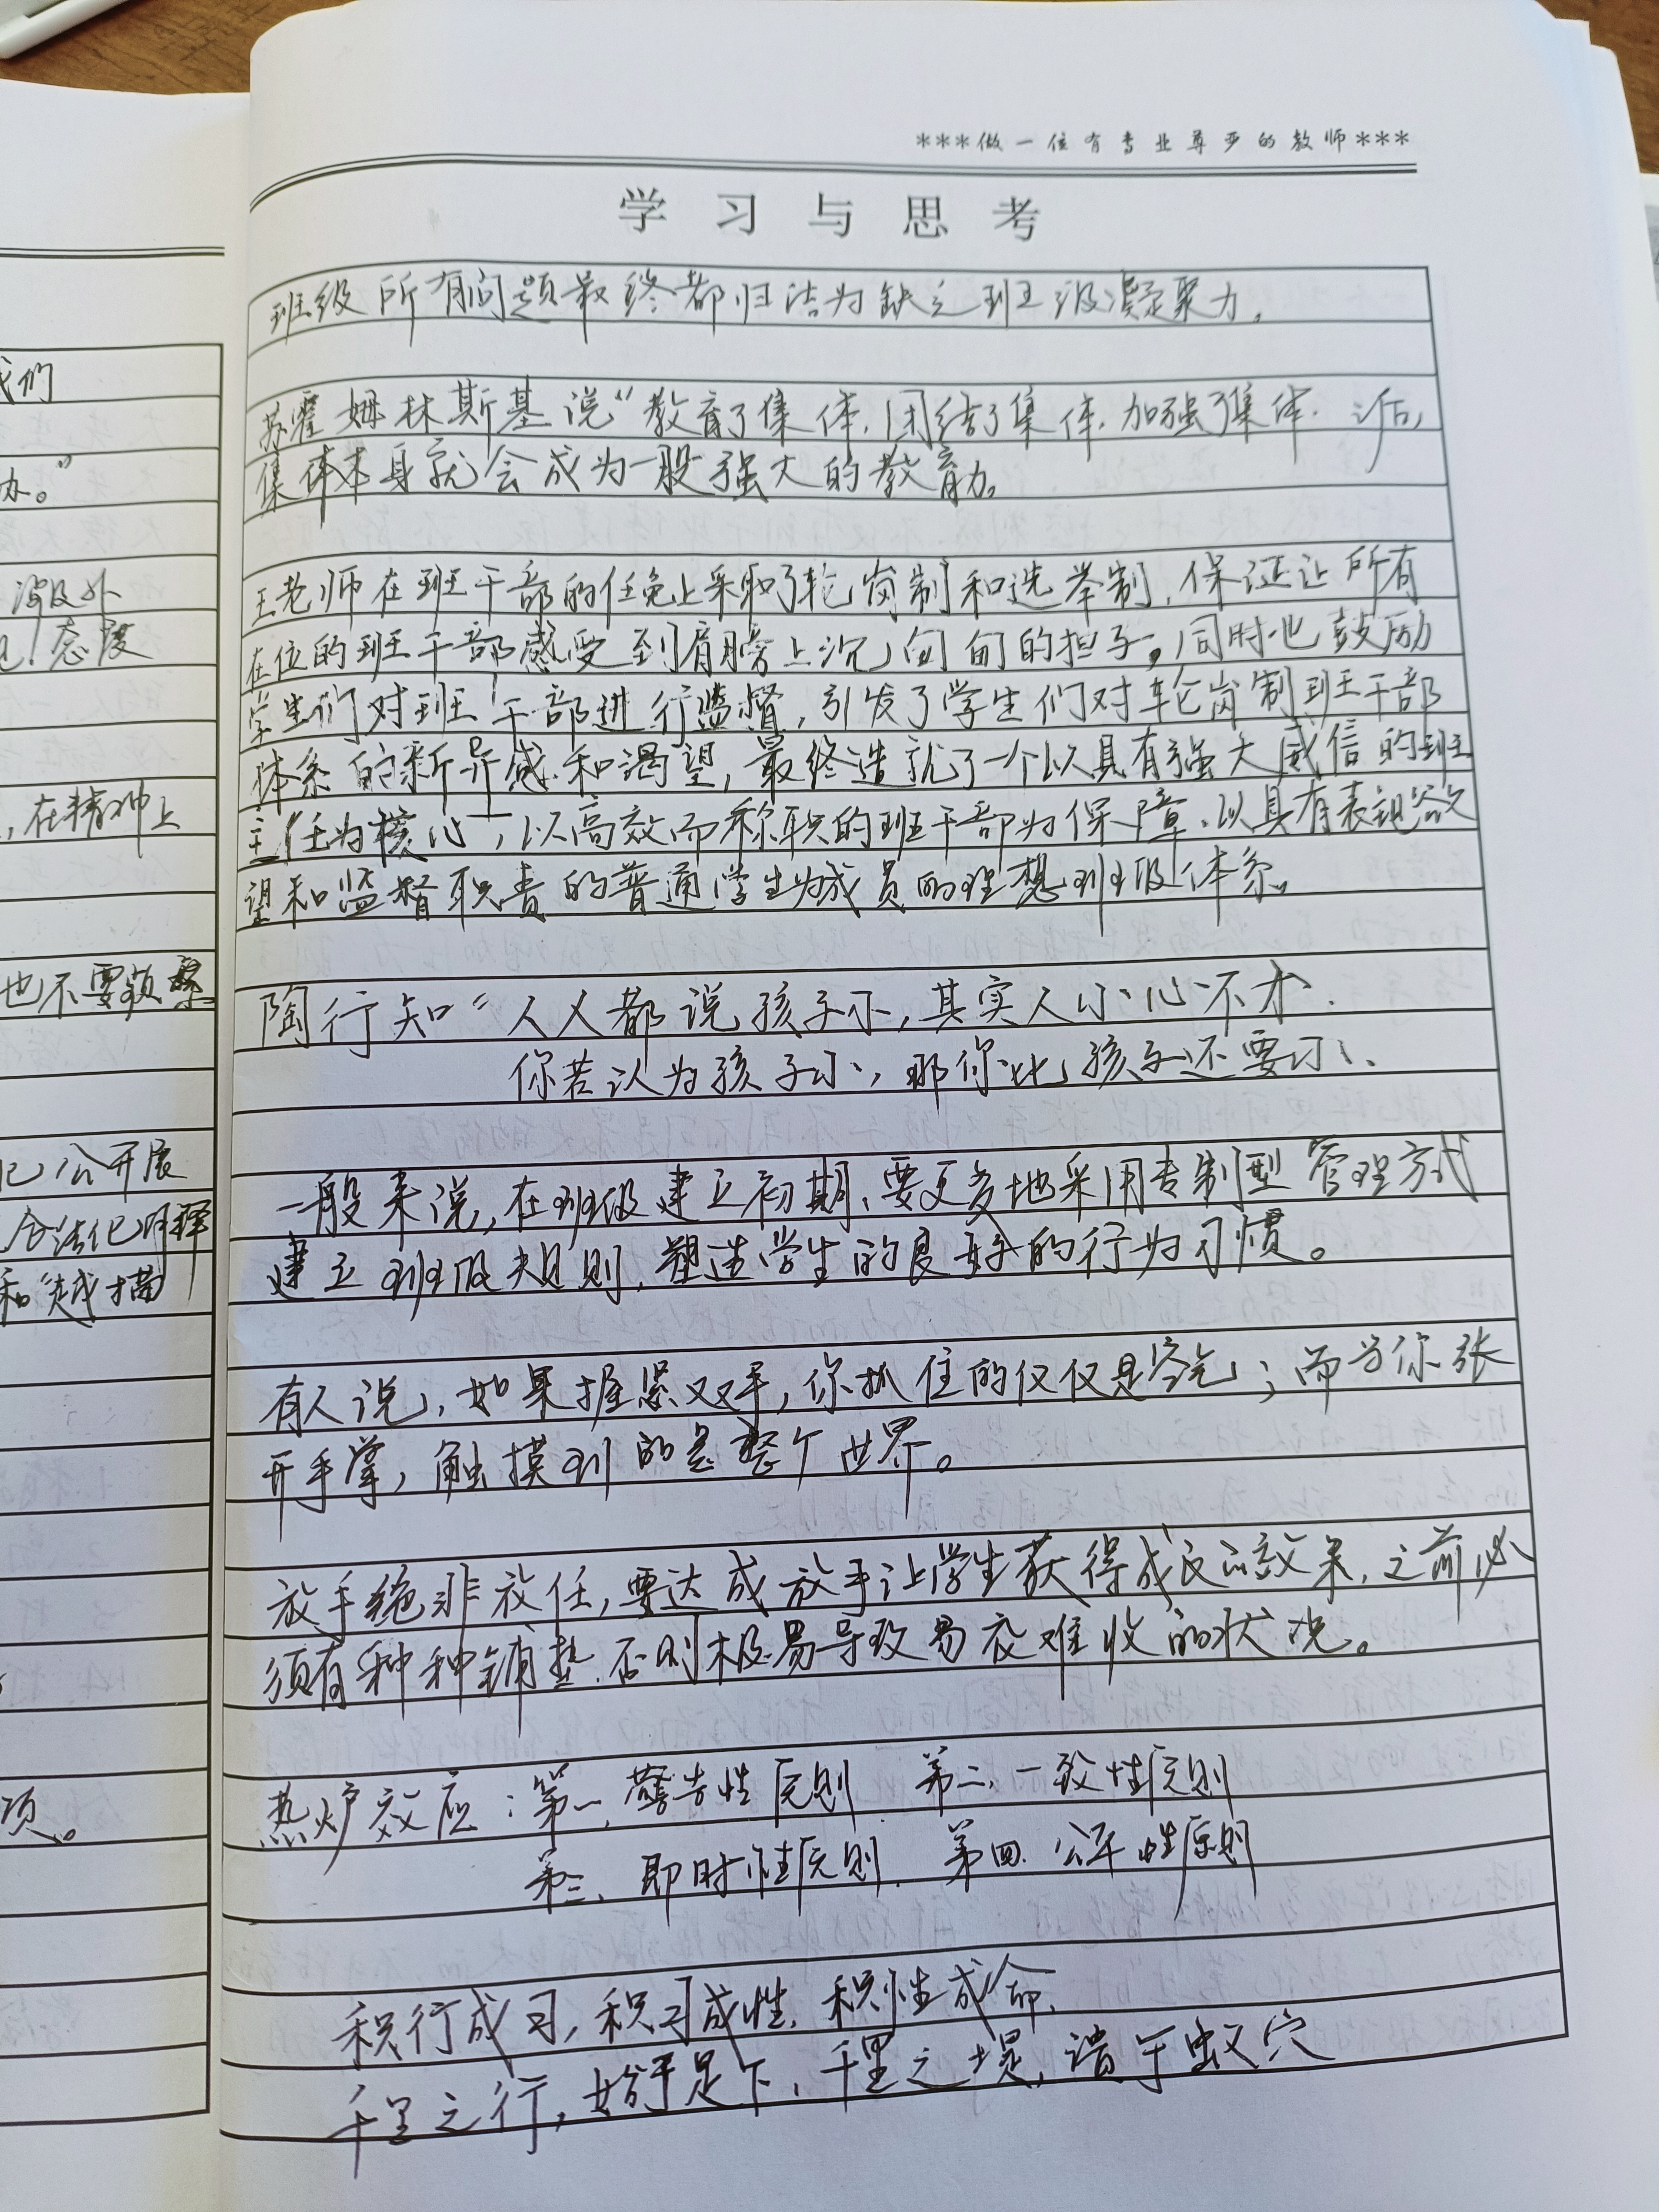 ***做一位有专业尊严的教师***
学习与思考
班级所有问题最终都归结为缺乏班级凝聚力。
苏霍姆林斯基说“教育了集体,团结了集体,加强了集体.以后,
集体本身就会成为一股强大的教育力。
王老师在班干部的任免上采取了轮岗制和选举制,保证让所有
在位的班干部感受到肩膀上沉甸甸的担子。同时也鼓励
学生们对班干部进行监督,引发了学生们对轮岗制班干部
体系的新异感和渴望,最终造就了一个以具有强大威信的班
主任为核心,以高效而称职的班干部为保障、以具有表现欲
望和监督职责的普通学生为成员的理想班级体系。
陶行知“人人都说孩子小,其实人小心不小.
你若认为孩子小,那你比孩子还要小、
一般来说,在班级建立初期、要更多地采用专制型管理方式
建立班级规则,塑造学生的良好的行为习惯。
有人说,如果握紧双手,你抓住的仅仅是空气;而当你张
开手掌,触摸到的是整个世界。
放手绝非放任,要达成放手让学生获得成长的效果,之前必
须有种种铺垫.否则极易导致易放难收的状况。
热炉效应:第一、警告性原则 第二、一致性原则
第三、即时性原则. 第四.公平性原则
积行成习,积习成性,积性成命.
千里之行,始于足下,千里之堤,溃于蚁穴
我们
办。”
态度
,在精神上
也不要
公开展
合法化
和
项。